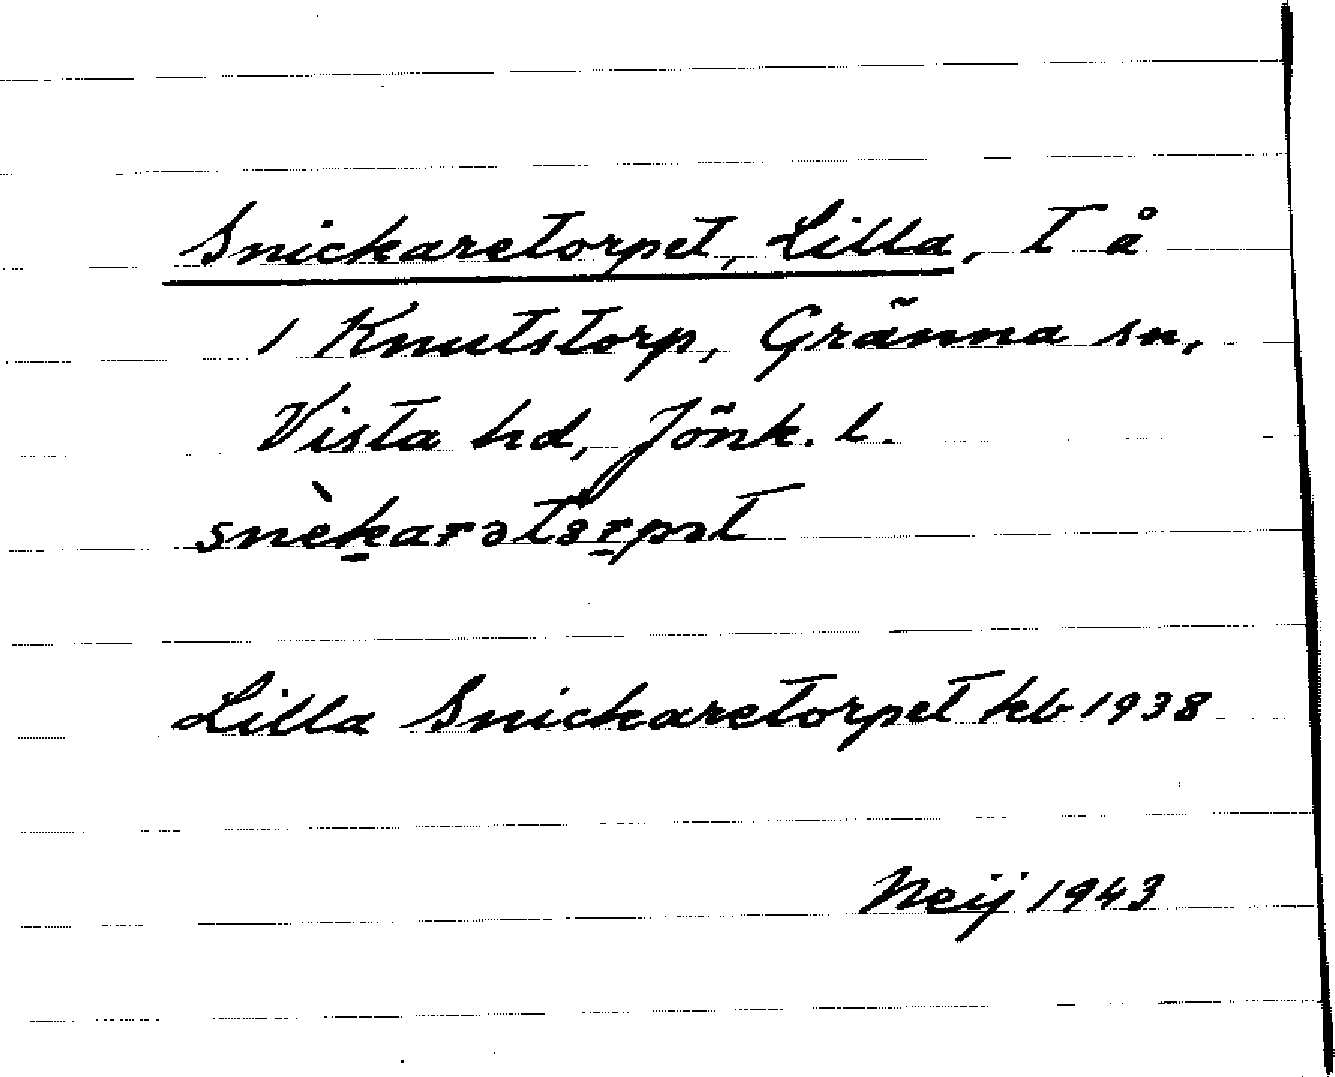 Snickaretorpet, Lilla, T å
1 Knutstorp, Gränna sn,
Vista hd, Jönk. l.
snèkarətɞrpət
Lilla Snickaretorpet kb 1938
Neij 1943